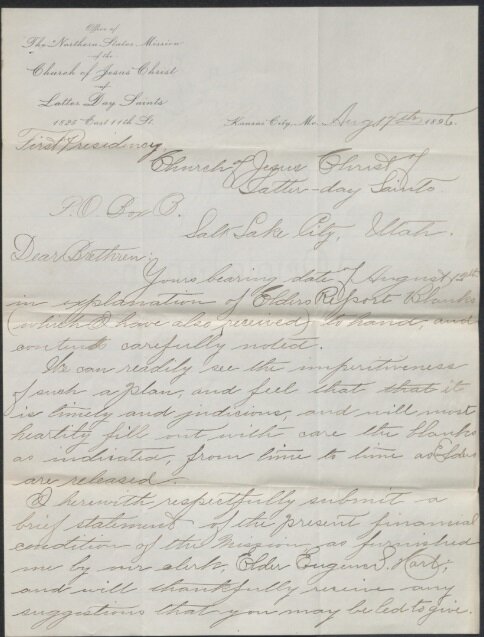 Office of
The Northern States Mission
of the
Church of Jesus Christ
of
Latter Day Saints
1825 East 11th St.
Kansas City, Mo. Aug 17th 1896.
First Presidency
Church of Jesus Christ of
Latter-day Saints.
P.O. Box B.
Salt Lake City, Utah.
Dear Brethren:
Yours bearing date of August 12th
in explanation of Elders Report Blanks
(which I have also received) to hand, and
contents carefully noted.
We can readily see the imperitiveness
of such a plan, and feel that that it
is timely and judicious, and will most
heartily fill out with care the blanks
as indicated, from time to time as Elders
are released.
I herewith respectfully submit a
brief statement of the present financial
condition of the Mission, as furnished
me by our clerk, Elder Eugene S. Hart;
and will thankfully receive any
suggestions that you may be led to give.